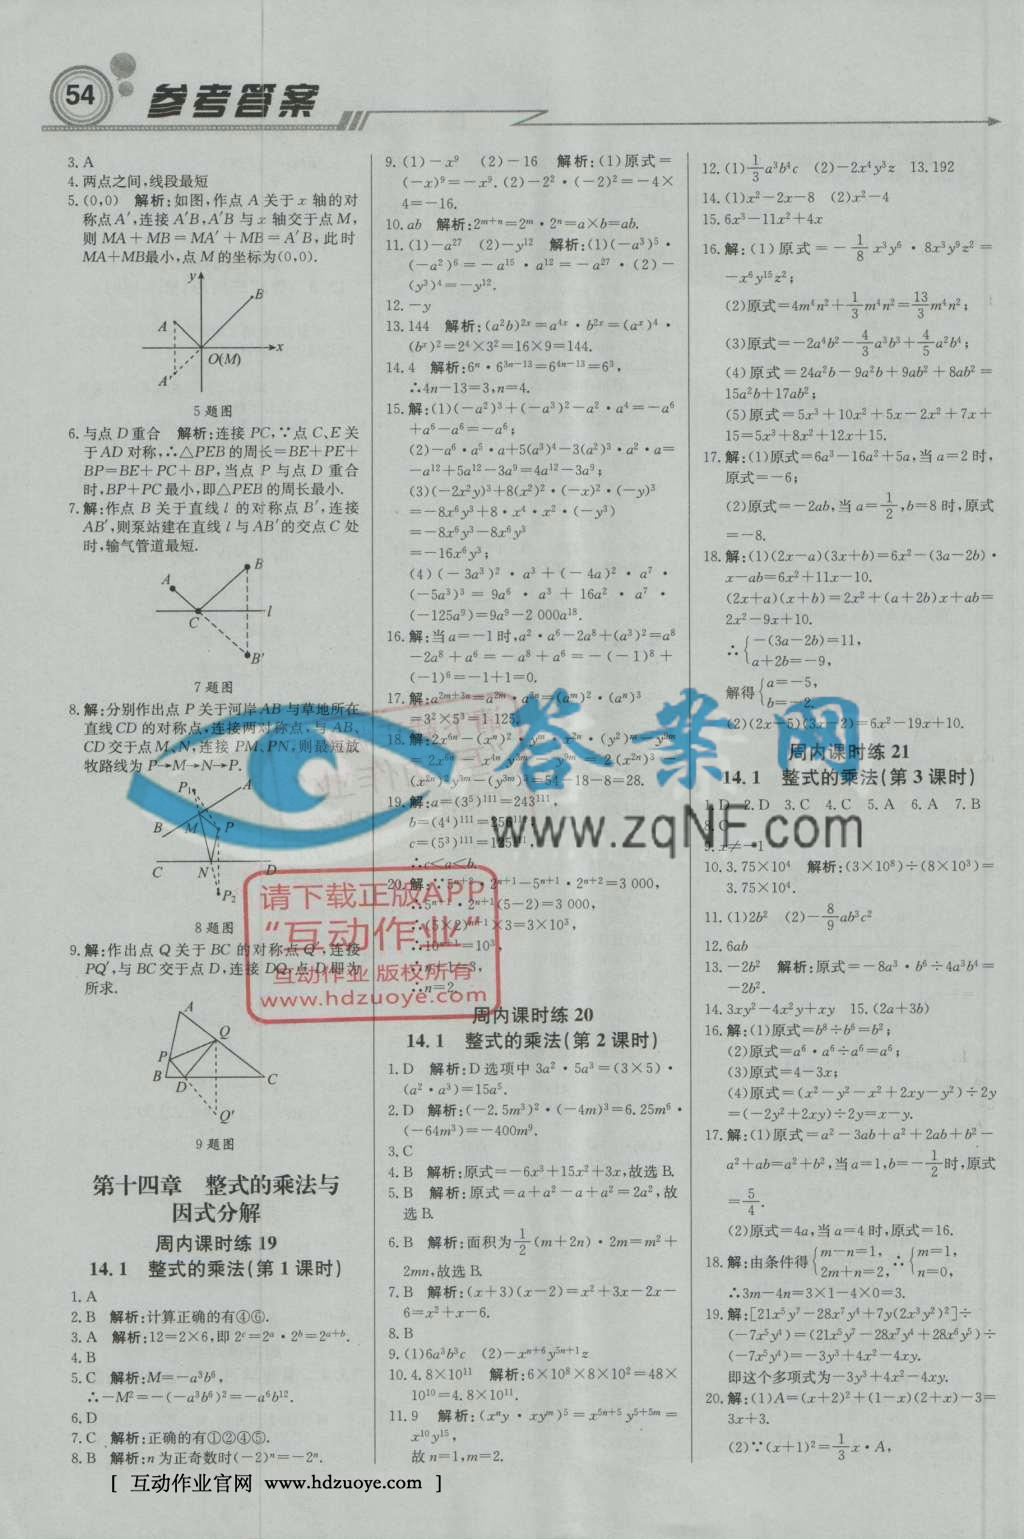 54 参考答案
3. A
4. 两点之间,线段最短
5. (0,0) 解析:如图,作点 A 关于 x 轴的对
称点 A′,连接 A′B,A′B 与 x 轴交于点 M,
则 MA+MB=MA′+MB=A′B,此时
MA+MB最小,点 M 的坐标为(0,0).
y
B
A
O(M)
x
A′
5 题图
6. 与点 D 重合 解析:连接 PC,∵点 C、E 关
于 AD 对称,∴△PEB 的周长=BE+PE+
BP=BE+PC+BP,当点 P 与点 D 重合
时,BP+PC 最小,即△PEB 的周长最小.
7. 解:作点 B 关于直线 l 的对称点 B′,连接
AB′,则泵站建在直线 l 与 AB′的交点 C 处
时,输气管道最短.
B
A
C
l
B′
7 题图
8. 解:分别作出点 P 关于河岸 AB 与草地所在
直线 CD 的对称点,连接两对称点,与 AB、
CD 交于点 M、N,连接 PM、PN,则最短放
牧路线为 P→M→N→P.
P₁
A
B
M
P
C
N
D
P₂
8 题图
9. 解:作出点 Q 关于 BC 的对称点 Q′,连接
PQ′,与 BC 交于点 D,连接 DQ,点 D 即为
所求.
A
Q
P
B
D
C
Q′
9 题图
第十四章 整式的乘法与
因式分解
周内课时练 19
14.1 整式的乘法(第 1 课时)
1. A
2. B 解析:计算正确的有④⑥.
3. A 解析:12=2×6,即 2ᶜ=2ᵃ·2ᵇ=2ᵃ⁺ᵇ.
4. B
5. C 解析:M=-a³b⁶,
∴-M²=-(-a³b⁶)²=-a⁶b¹².
6. D
7. C 解析:正确的有①②④⑤.
8. B 解析:n 为正奇数时(-2)ⁿ=-2ⁿ.
9. (1)-x⁹ (2)-16 解析:(1)原式=
(-x)⁹=-x⁹.(2)-2²·(-2)²=-4×
4=-16.
10. ab 解析:2ᵐ⁺ⁿ=2ᵐ·2ⁿ=a×b=ab.
11. (1)-a²⁷ (2)-y¹² 解析:(1)(-a³)⁵·
(-a²)⁶=-a¹⁵·a¹²=-a²⁷·(2)-
(y³)⁴=-y¹².
12. -y
13. 144 解析:(a²b)²ˣ=a⁴ˣ·b²ˣ=(aˣ)⁴·
(bˣ)²=2⁴×3²=16×9=144.
14. 4 解析:6ⁿ·6³ⁿ⁻¹³=6⁴ⁿ⁻¹³=6³,
∴4n-13=3,n=4.
15. 解:(1)(-a²)³+(-a³)²-a²·a⁴=-a⁶
+a⁶-a⁶=-a⁶;
(2)-a⁶·a⁵·a+5(a³)⁴-3(a²)³·a²·a=
-a¹²+5a¹²-3a⁹=4a¹²-3a⁹;
(3)(-2x²y)³+8(x²)²·(-x)²·(-y)³
=-8x⁶y³+8·x⁴·x²·(-y³)
=-8x⁶y³-8x⁶y³
=-16x⁶y³;
(4)(-3a³)²·a³+(-4a)²·a⁷·
(-5a³)³=9a⁶·a³+16a²·a⁷·
(-125a⁹)=9a⁹-2 000a¹⁸.
16. 解:当 a=-1 时,a²·a⁶-2a⁸+(a³)²=a⁸
-2a⁸+a⁶=-a⁸+a⁶=-(-1)⁸+
(-1)⁶=-1+1=0.
17. 解:a²ᵐ⁺³ⁿ=a²ᵐ·a³ⁿ=(aᵐ)²·(aⁿ)³
=3²×5³=1 125.
18. 解:2x⁶ⁿ-(xⁿ)²·yᵐ·x²ⁿ·(y²)ᵐ-y³ᵐ
=2x⁶ⁿ-x⁴ⁿy³ᵐ-y⁹ᵐ=2(x²ⁿ)³-
(x²ⁿ)²y³ᵐ-(y³ᵐ)³=54-18-8=28.
19. 解:a=(3⁵)¹¹¹=243¹¹¹,
b=(4⁴)¹¹¹=256¹¹¹,
c=(5³)¹¹¹=125¹¹¹.
∴c<a<b.
20. 解:∵5ⁿ⁺²·2ⁿ⁺¹-5ⁿ⁺¹·2ⁿ⁺²=3 000,
∴5ⁿ⁺¹·2ⁿ⁺¹(5-2)=3 000,
∴(5×2)ⁿ⁺¹×3=3×10³,
∴10ⁿ⁺¹=10³,
∴n+1=3,
∴n=2.
周内课时练 20
14.1 整式的乘法(第 2 课时)
1. D 解析:D 选项中 3a²·5a³=(3×5)·
(a²·a³)=15a⁵.
2. D 解析:(-2.5m³)²·(-4m)³=6.25m⁶·
(-64m³)=-400m⁹.
3. C
4. B 解析:原式=-6x³+15x²+3x,故选 B.
5. B 解析:原式=a+a²-a+a²=2a²,故
选 B.
6. B 解析:面积为1/2(m+2n)·2m=m²+
2mn,故选 B.
7. B 解析:(x+3)(x-2)=x²+3x-2x-
6=x²+x-6.
8. B
9. (1)6a³b³c (2)-xⁿ⁺⁶y⁵ⁿ⁺¹z
10. 4.8×10¹¹ 解析:6×10⁸×8×10²=48×
10¹⁰=4.8×10¹¹.
11. 9 解析:(xⁿy·xyᵐ)⁵=x⁵ⁿ⁺⁵y⁵⁺⁵ᵐ=
x¹⁰y¹⁵,
故 n=1,m=2.
12. (1)1/3a³b⁴c (2)-2x⁴y³z 13. 192
14. (1)x²-2x-8 (2)x²-4
15. 6x³-11x²+4x
16. 解:(1)原式=-1/8x³y⁶·8x³y⁹z²=
-x⁶y¹⁵z²;
(2)原式=4m⁴n²+1/3m⁴n²=13/3m⁴n²;
(3)原式=-2a⁴b²-4/3a³b³+4/5a²b⁴;
(4)原式=24a²b-9a²b+9ab²+8ab²=
15a²b+17ab²;
(5)原式=5x³+10x²+5x-2x²+7x+
15=5x³+8x²+12x+15.
17. 解:(1)原式=6a³-16a²+5a,当 a=2 时,
原式=-6;
(2)原式=-2ab,当 a=1/2,b=8 时,原式
=-8.
18. 解:(1)(2x-a)(3x+b)=6x²-(3a-2b)·
x-ab=6x²+11x-10.
(2x+a)(x+b)=2x²+(a+2b)x+ab=
2x²-9x+10.
∴{-(3a-2b)=11,
a+2b=-9,
解得{a=-5,
b=-2.
(2)(2x-5)(3x-2)=6x²-19x+10.
周内课时练 21
14.1 整式的乘法(第 3 课时)
1. D 2. D 3. C 4. C 5. A 6. A 7. B
8. C
9. x≠-1
10. 3.75×10⁴ 解析:(3×10⁸)÷(8×10³)=
3.75×10⁴.
11. (1)2b² (2)-8/9ab³c²
12. 6ab
13. -2b² 解析:原式=-8a³·b⁶÷4a³b⁴=
-2b².
14. 3xy²-4x²y+xy 15. (2a+3b)
16. 解:(1)原式=b⁸÷b⁶=b²;
(2)原式=a⁶·a⁶÷a⁶=a⁶;
(3)原式=4-3x;
(4)原式=(x²-y²-x²+2xy-y²)÷2y
=(-2y²+2xy)÷2y=x-y.
17. 解:(1)原式=a²-3ab+a²+2ab+b²-
a²+ab=a²+b²,当 a=1,b=-1/2时,原式
=5/4.
(2)原式=4a,当 a=4 时,原式=16.
18. 解:由条件得{m-n=1, ∴{m=1,
2m+n=2, n=0,
∴3m-4n=3×1-4×0=3.
19. 解:[21x⁵y⁷-28x⁷y⁴+7y(2x³y²)²]÷
(-7x⁵y⁴)=(21x⁵y⁷-28x⁷y⁴+28x⁶y⁵)÷
(-7x⁵y⁴)=-3y³+4x²-4xy.
即这个多项式为-3y³+4x²-4xy.
20. 解:(1)A=(x+2)²+(1-x)(2+x)-3=
3x+3.
(2)∵(x+1)²=1/3x·A,
答案网
www.zqNF.com
请下载正版APP
“互动作业”
互动作业 版权所有
www.hdzuoye.com
[ 互动作业官网 www.hdzuoye.com ]